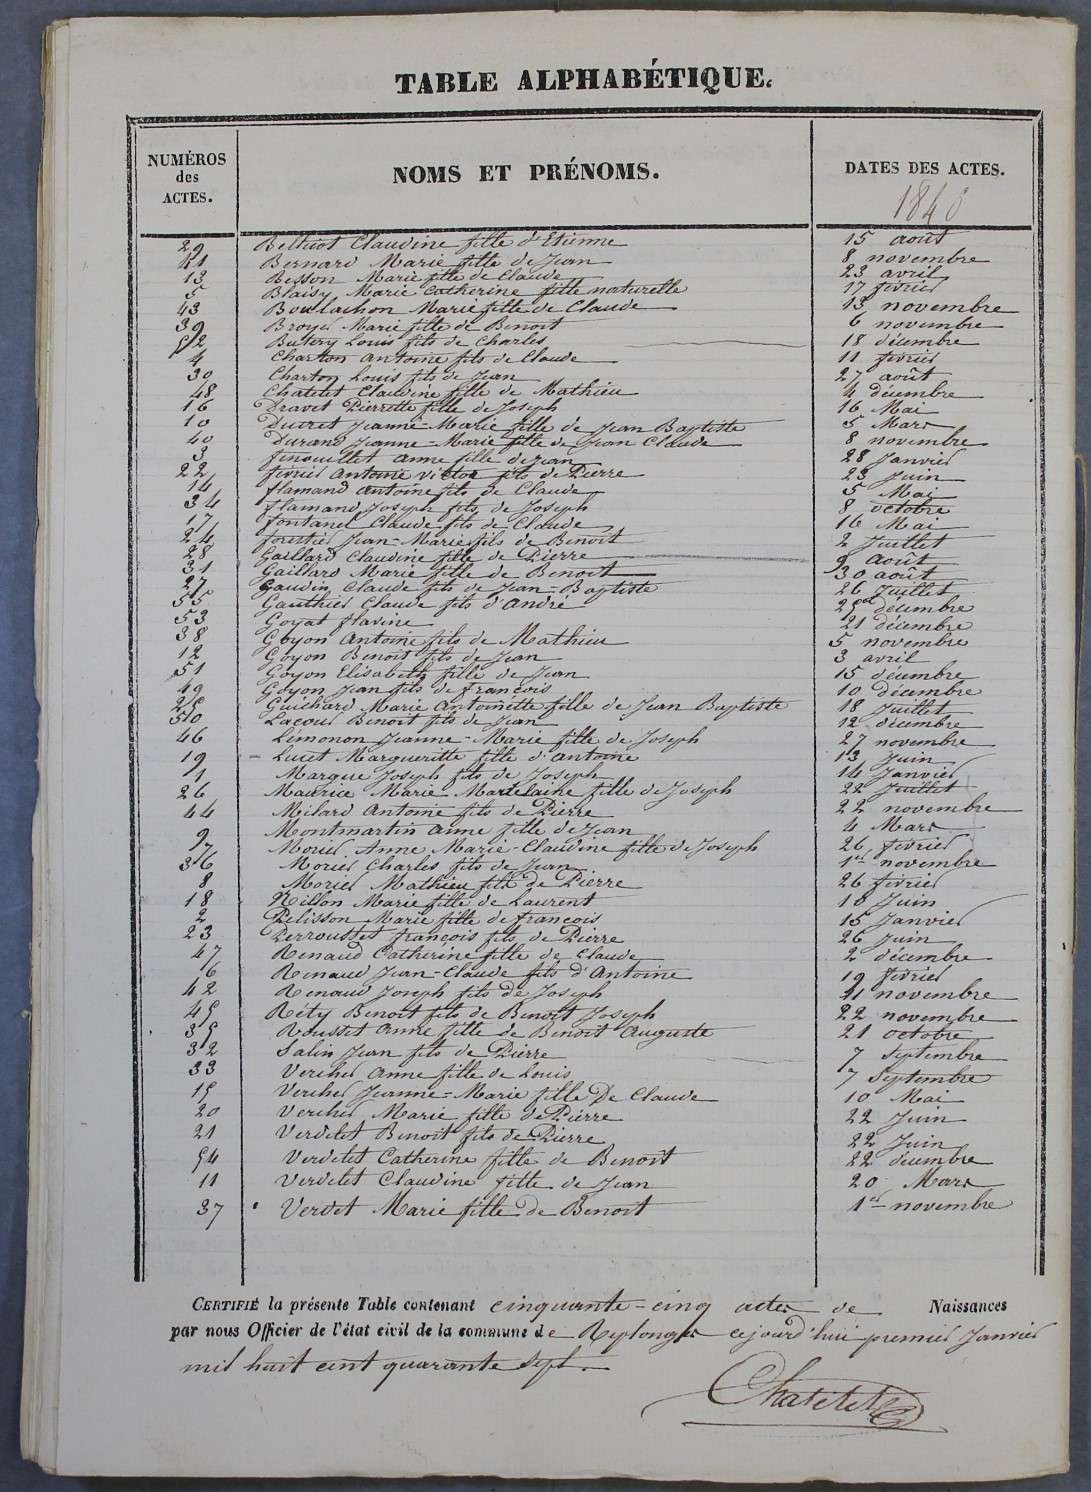 TABLE ALPHABÉTIQUE.
NUMÉROS des ACTES. NOMS ET PRÉNOMS. DATES DES ACTES.
1846
29 Belticot Claudine fille d'Etienne 15 août
41 Bernard Marie fille de Jean 8 novembre
13 Besson Marie fille de Claude 23 avril
5 Blaisy Marie Catherine fille naturelle 17 fevrier
43 Boulachon Marie fille de Claude 13 novembre
39 Broyer Marie fille de Benoit 6 novembre
52 Buttery Louis fils de Charles 18 décembre
4 Charton antoine fils de Claude 11 fevrier
30 Charton Louis fils de Jean 27 août
48 Chatelet Claudine fille de Mathieu 4 décembre
16 Dravet Pierrette fille de Joseph 16 Mai
10 Ducret Jeanne-Marie fille de Jean Baptiste 5 Mars
40 Durand Jeanne-Marie fille de Jean Claude 8 novembre
3 fenouillet anne fille de Jean 28 Janvier
22 fevrier antoine victor fils de Pierre 23 Juin
14 flamand antoine fils de Claude 5 Mai
34 flamand Joseph fils de Joseph 8 octobre
17 fontanel Claude fils de Claude 16 Mai
24 forestier Jean-Marie fils de Benoit 2 Juillet
28 Gaillard Claudine fille de Pierre 9 août
31 Gaillard Marie fille de Benoit 30 août
27 Gaudin Claude fils de Jean-Baptiste 26 Juillet
55 Gauthier Claude fils d'andré 25 décembre
53 Goyat flavine 21 décembre
38 Goyon Antoine fils de Mathieu 5 novembre
12 Goyon Benoit fils de Jean 3 avril
51 Goyon Elisabeth fille de Jean 15 décembre
49 Goyon Jean fils de françois 10 décembre
25 Guichard Marie Antoinette fille de Jean Baptiste 18 Juillet
50 Lacour Benoit fils de Jean 12 décembre
46 Limonon Jeanne-Marie fille de Joseph 27 novembre
19 Lucet Margueritte fille d'antoine 13 Juin
1 Marque Joseph fils de Joseph 14 Janvier
26 Maurice Marie-Madelaine fille de Joseph 22 Juillet
44 Milard Antoine fils de Pierre 22 novembre
9 Montmartin anne fille de Jean 4 Mars
7 Morier Anne Marie-Claudine fille de Joseph 26 fevrier
36 Morier Charles fils de Jean 1er novembre
8 Morier Mathieu fils de Pierre 26 fevrier
18 Nillon Marie fille de Laurent 10 Juin
2 Pelisson Marie fille de françois 15 Janvier
23 Perrousset françois fils de Pierre 26 Juin
47 Renaud Catherine fille de Claude 2 décembre
6 Renaud Jean-Claude fils d'Antoine 19 fevrier
42 Renaud Joseph fils de Joseph 11 novembre
45 Réty Benoit fils de Benoit Joseph 22 novembre
35 Rousset anne fille de Benoit Auguste 21 octobre
32 Salin Jean fils de Pierre 7 septembre
33 Vercher anne fille de Louis 7 Septembre
15 Vercher Jeanne-Marie fille De Claude 10 Mai
20 Vercher Marie fille de Pierre 22 Juin
21 Verdelet Benoit fils de Pierre 22 Juin
54 Verdelet Catherine fille de Benoit 22 décembre
11 Verdelet Claudine fille de Jean 20 Mars
37 Verdet Marie fille de Benoit 1er novembre
CERTIFIÉ la présente Table contenant cinquante-cinq actes de Naissances
par nous Officier de l'état civil de la commune de Replonges cejourd'hui premier Janvier
mil huit cent quarante sept.
Chatelet